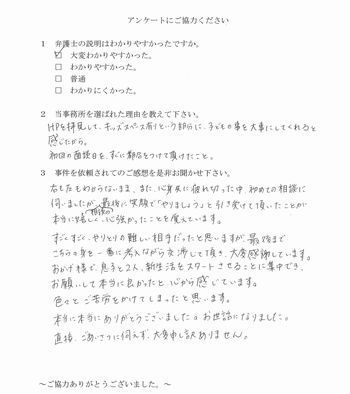 アンケートにご協力ください
1 弁護士の説明はわかりやすかったですか。
☑ 大変わかりやすかった。
□ わかりやすかった。
□ 普通
□ わかりにくかった。
2 当事務所を選ばれた理由を教えて下さい。
HPを拝見して、キッズスペース有りという部分に、子どもの事を大事にしてくれると
感じたから。
初回の面談日を、すぐに都合をつけて頂けたこと。
3 事件を依頼されてのご感想を是非お聞かせ下さい。
右も左もわからないまま、また、心身共に疲れ切った中、初めての相談に
伺いましたが、最後に笑顔で「やりましょう」と引き受けて頂いたことが
相談の
本当に嬉しく、心強かったことを覚えています。
すごくすごく、やりとりの難しい相手だったと思いますが、最後まで
こちらの身を一番に考えながら交渉して頂き、大変感謝しています。
おかげ様で、息子と2人、新生活をスタートさせることに集中でき、
お願いして本当に良かったと、心から感じています。
色々とご苦労をかけてしまったと思います。
本当に本当にありがとうございました。お世話になりました。
直接、ごあいさつに伺えず、大変申し訳ありません。
～ご協力ありがとうございました。～